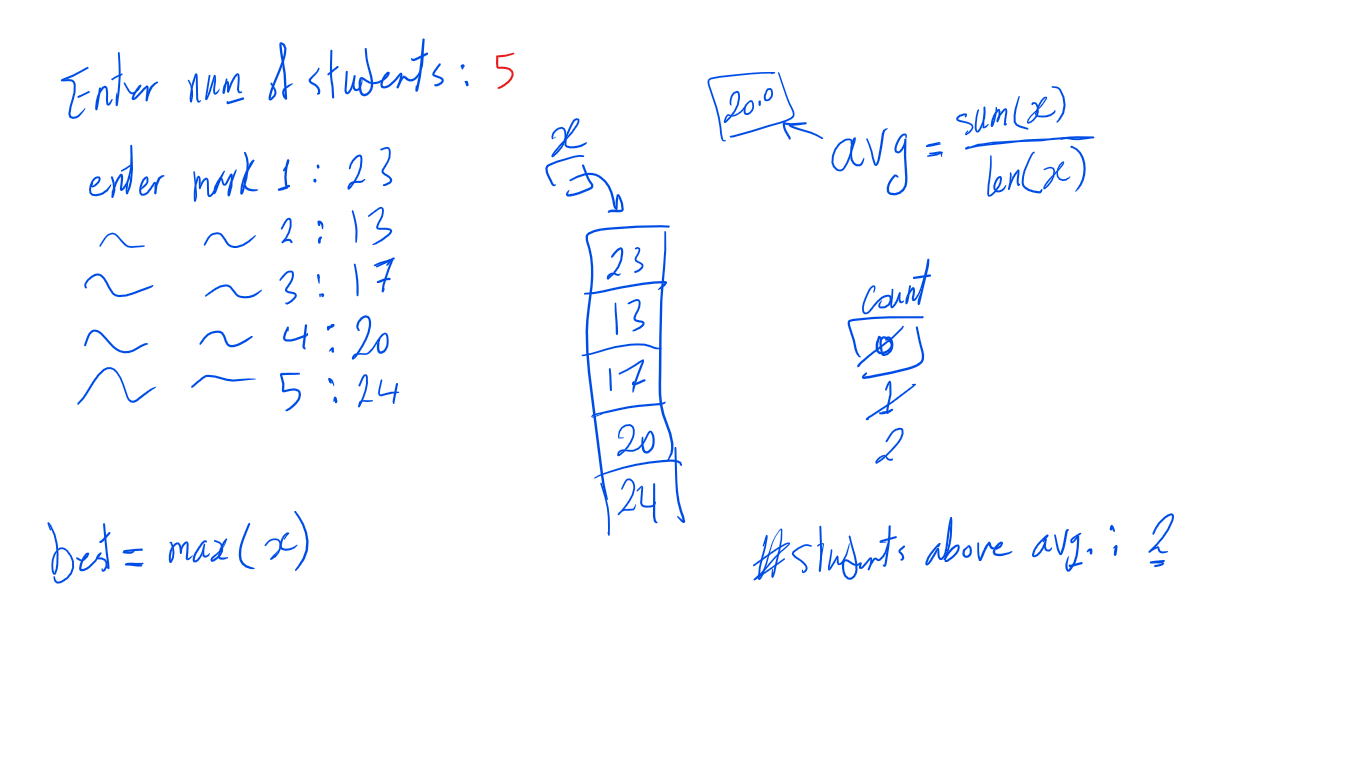 Enter num of students : 5
enter mark 1 : 23
~ ~ 2 : 13
~ ~ 3 : 17
~ ~ 4 : 20
~ ~ 5 : 24
best = max(x)
x
23
13
17
20
24
20.0
avg = sum(x)
len(x)
count
0
1
2
#students above avg. : 2